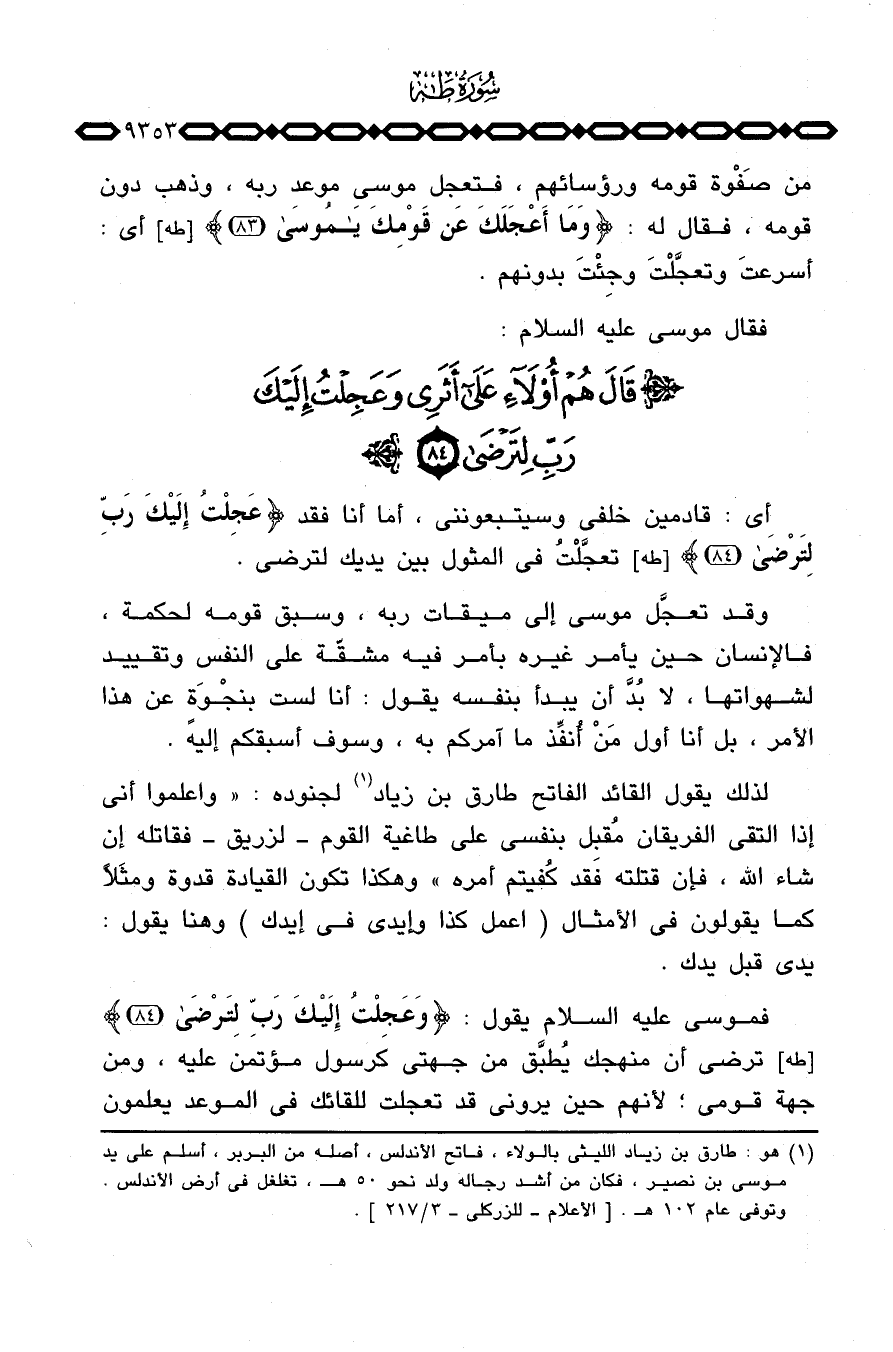 سُورَةُ طٰهٰ
٩٣٥٣
من صَفْوة قومه ورؤسائهم ، فـتعجل موسى موعد ربه ، وذهب دون
قومه ، فـقال له : ﴿وَمَا أَعْجَلَكَ عَن قَوْمِكَ يَـٰمُوسَىٰ (٨٣)﴾ [طه] أى :
أسرعتَ وتعجَّلْتَ وجِئْتَ بدونهم .
فقال موسى عليه السلام :
﴿قَالَ هُمْ أُوْلَآءِ عَلَىٰٓ أَثَرِى وَعَجِلْتُ إِلَيْكَ
رَبِّ لِتَرْضَىٰ (٨٤)﴾
أى : قادمين خلفى وسيتـبعوننى ، أما أنا فقد ﴿عَجِلْتُ إِلَيْكَ رَبِّ
لِتَرْضَىٰ (٨٤)﴾ [طه] تعجَّلْتُ فى المثول بين يديك لترضى .
وقـد تعـجَّل موسى إلى مـيـقـات ربه ، وسـبق قومـه لحكمـة ،
فـالإنسان حـين يأمـر غيره بأمـر فيـه مشقّـة على النفس وتقـييـد
لشـهواتهـا ، لا بُدَّ أن يبـدأ بنفـسه يقـول : أنا لست بنجْوَة عن هذا
الأمر ، بل أنا أول مَنْ أُنفِّذ ما آمركم به ، وسوف أسبقكم إليه .
لذلك يقول القائد الفاتح طارق بن زياد(١) لجنوده : « واعلموا أنى
إذا التقى الفريقان مُقبل بنفسى على طاغية القوم - لزريق - فقاتله إن
شاء الله ، فإن قتلته فَقد كُفيتم أمره » وهكذا تكون القيادة قدوة ومثَلاً
كمـا يقولون فى الأمثـال ( اعمل كذا وإيدى فـى إيدك ) وهنا يقول :
يدى قبل يدك .
فمـوسى عليه السـلام يقول : ﴿وَعَجِلْتُ إِلَيْكَ رَبِّ لِتَرْضَىٰ (٨٤)﴾
[طه] ترضى أن منهجك يُطبَّق من جـهتى كرسول مـؤتمن عليه ، ومن
جهة قـومى ؛ لأنهم حين يرونى قد تعجلت للقائك فى المـوعد يعلمون
(١) هو : طارق بن زيـاد الليثى بالـولاء ، فـاتح الأندلس ، أصلـه من البربر ، أسلـم على يد
مـوسى بن نصيـر ، فكان من أشد رجـاله ولد نحو ٥٠ هـ ، تغلغل فى أرض الأندلس .
وتوفى عام ١٠٢ هـ . [ الأعلام - للزركلى - ٢١٧/٣ ] .